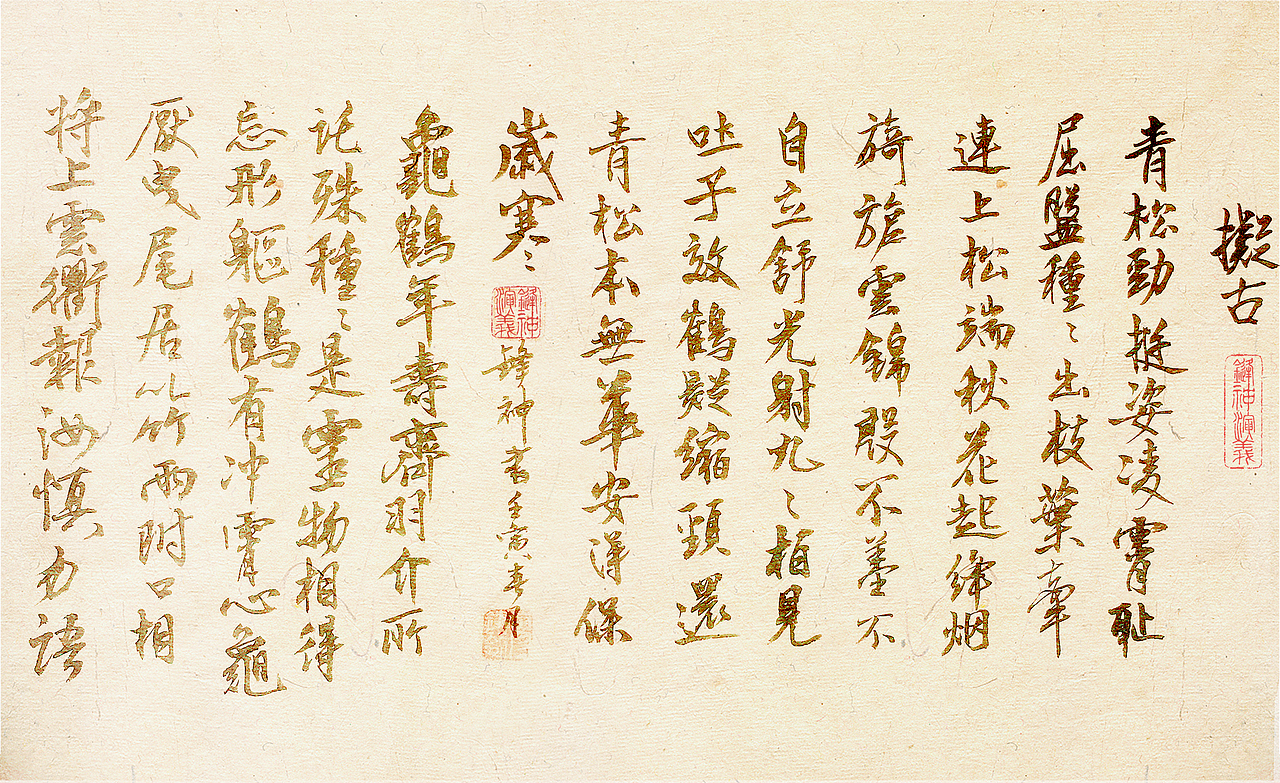 擬古
鋒神演義
青松勁挺姿凌霄恥
屈盤種〻出枝葉牽
連上松端秋花起絳烟
旖旎雲錦殷不羞不
自立舒光射丸〻柏見
吐子效鶴疑縮頸還
青松本無華安得保
歲寒
鋒神演義
鋒神書壬寅春月
龜鶴年壽齊羽介所
託殊種〻是靈物相得
忘形軀鶴有冲霄心龜
厭曳尾居以竹兩附口相
將上雲衢報汝慎勿語